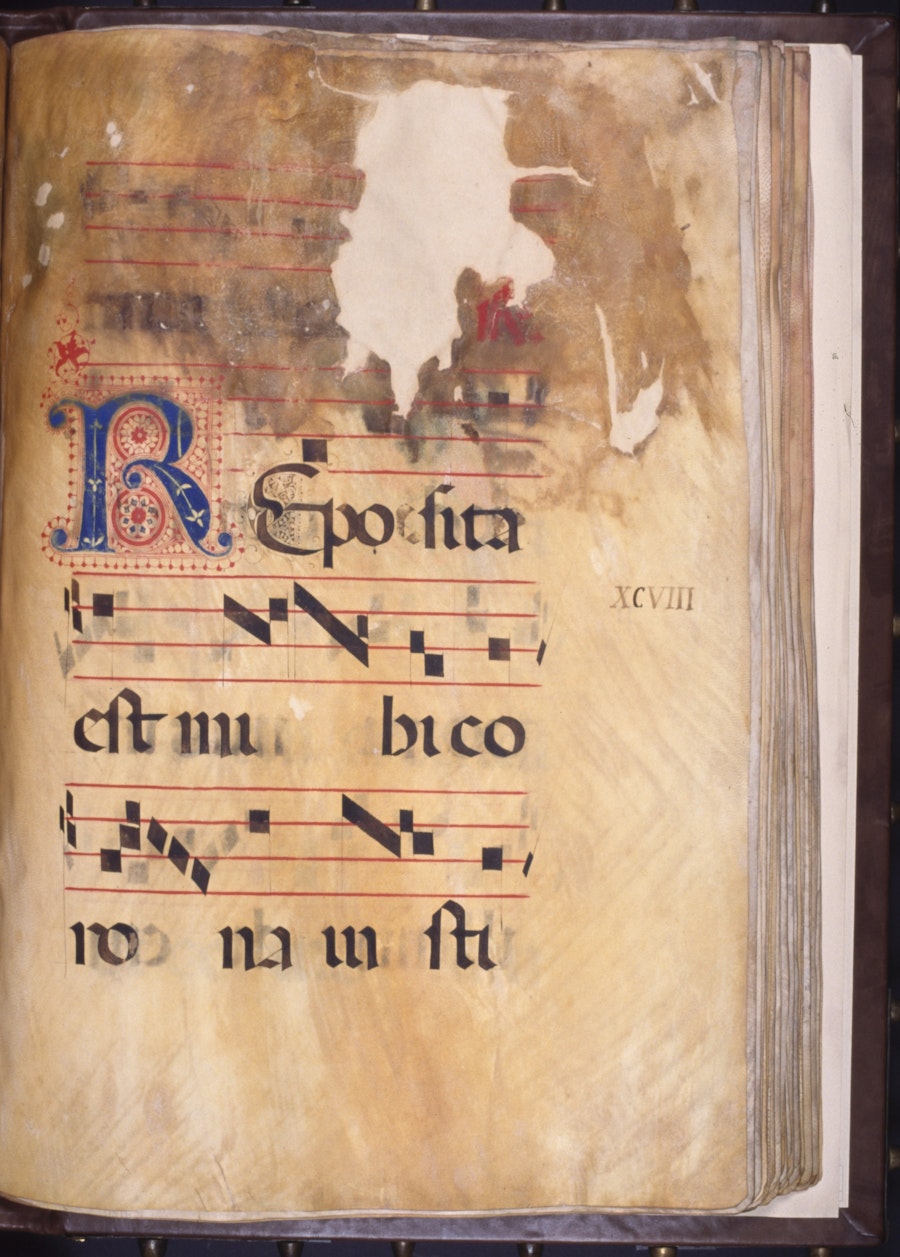 REposita
XCVIII
est mi bi co
ro na iu sti